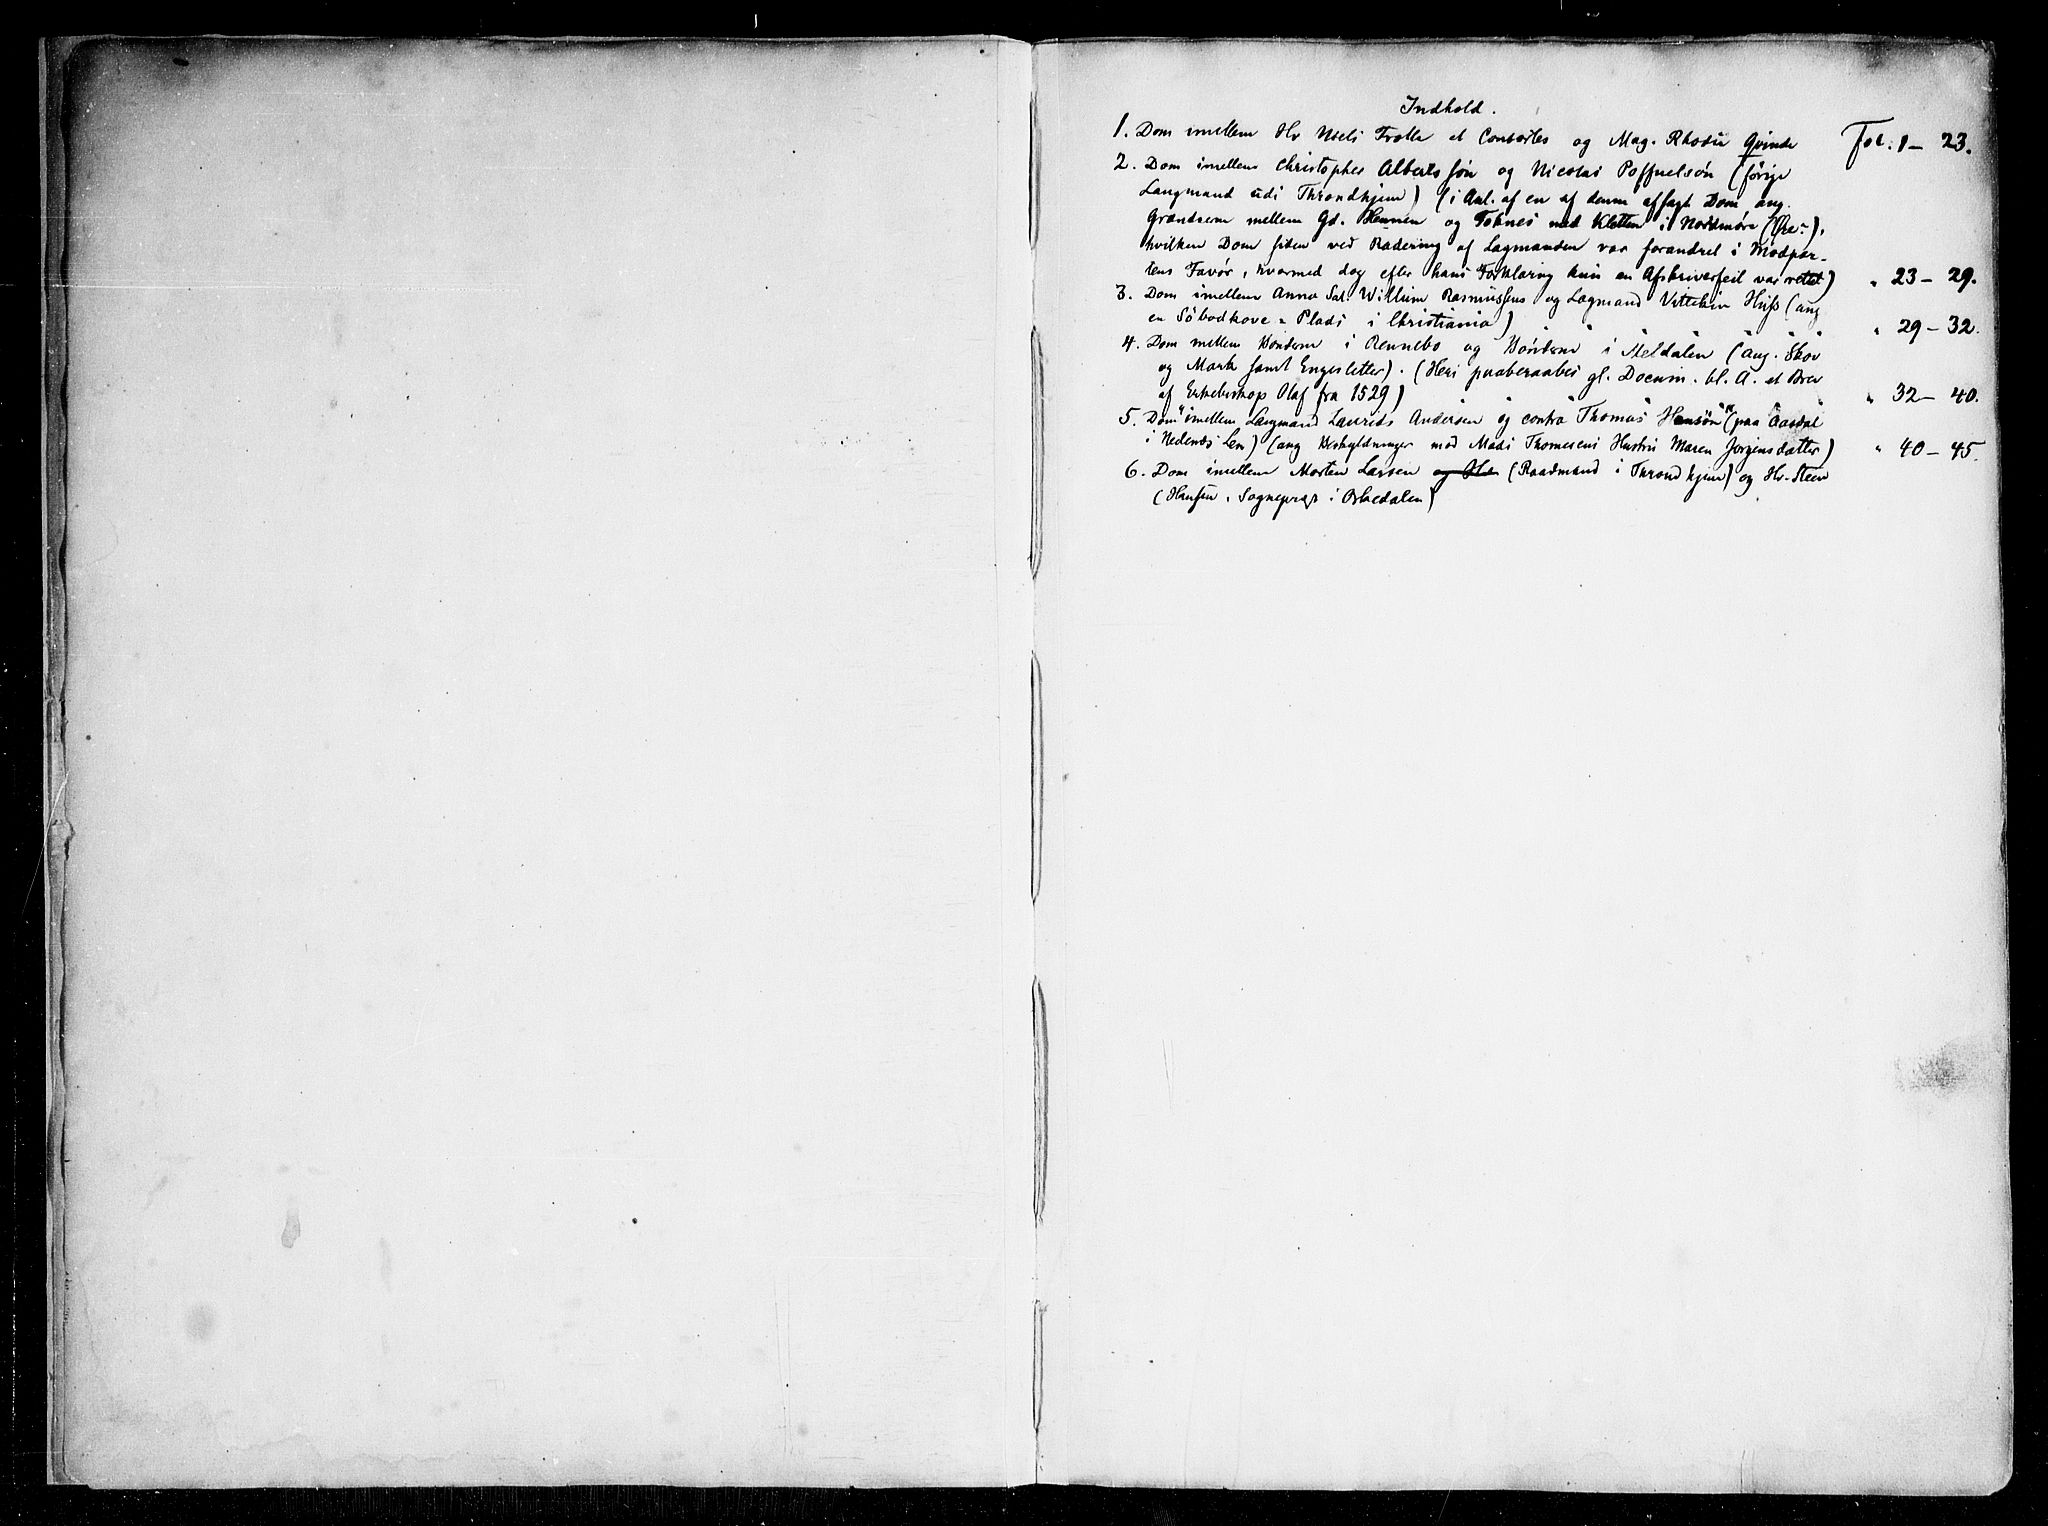 Indhold.
1. Dom imellem Hr Niels Trolle et Consortes og Mag. Rhodii Qvinde Fol: 1 – 23.
2. Dom imellem Christopher Albertssøn og Nicolai Poffuelsøn (forige
Laugmand udi Throndhjem) (i Anl. af en af denne affsagt Dom ang.
Grændserne mellem Gd. Hennen og Toknes med Kletten i Nordmøre (Øre?),
hvilken Dom siden ved Radering af Lagmanden var forandret i Modpar-
tens Favør, hvormed dog efter hans Forklaring kun en Afskriverfeil var rettet) " 23 – 29.
3. Dom imellem Anna Sal. Willum Rasmussens og Lagmand Vittekin Huss (ang
en Søbodhove-Plads i Christiania) " 29 – 32.
4. Dom mellem Bønderne i Rennebo og Bønderne i Meldalen (ang. Skov
og Mark samt Engesletter). (Heri paaberaabes gl. Docum. bl. A. et Brev
af Erkebiskop Olaf fra 1529) " 32 – 40.
5. Dom imellem Laugmand Laurids Andersen og contra Thomas Hansøn (paa Aasdal
i Nedenes Len) (ang Beskyldninger mod Mads Thomesens Hustru Maren Jørgensdatter) " 40 – 45.
6. Dom imellem Morten Larsen og Hr (Raadmand i Throndhjem) og Hr. Steen
(Hansen, Sogneprest i Orkedalen)